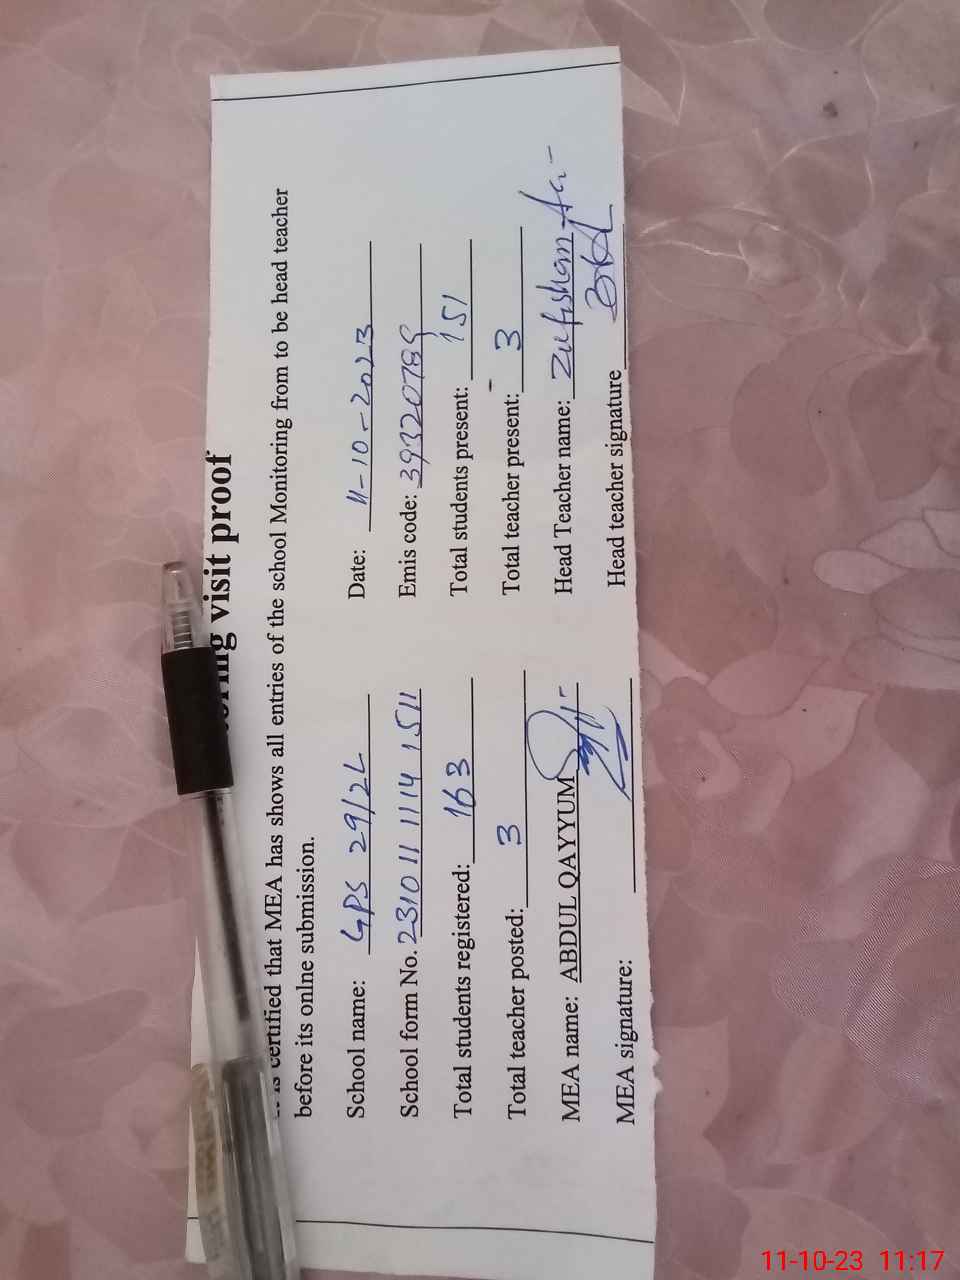 oring visit proof
is certified that MEA has shows all entries of the school Monitoring from to be head teacher
before its onlne submission.
School name: GPS 29/2L Date: 11-10-2023
School form No. 2310 11 1114 1511 Emis code: 39320789
Total students registered: 163 Total students present: 151
Total teacher posted: 3 Total teacher present: 3
MEA name: ABDUL QAYYUM Head Teacher name: Zulfishan
MEA signature: Head teacher signature
11-10-23 11:17